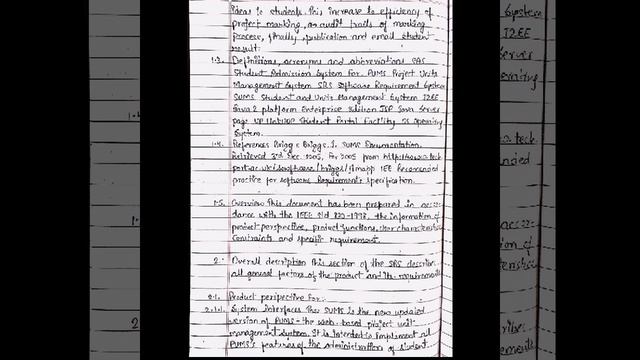 ideas to students this increase to efficiency of
project marking, an audit trails of marking
process, finally publication and email student
result.
1.3. Definitions, acronyms and abbreviations SAS
Student Admission System For PUMS Project Units
Management System SRS Software Requirement System
SUMS Student and Units Management System J2EE
Java 2 platform Enterprise Edition JSP Java Server
page UP Student Portal Facility OS operating
System.
1.4. References Briggs & Briggs J. SUMS Documentation.
Retrieved 3rd Dec 2005, from
port.ac.uk/software/briggs/ IEE Recommended
practice for software Requirements specification.
1.5. Overview This document has been prepared in accor-
dance with the IEEE std 830-1998, the information of
product perspective, product functions, user characteristics
constraints and specific requirement.
2. Overall description this section of the SRS describe
all general factors of the product and its requirements
2.1. Product perspective for:-
2.1.1. System interfaces This SUMS is the new updated
version of PUMS - the web-based project unit
management system. It is intended to implement all
PUMS's features of the administration of student